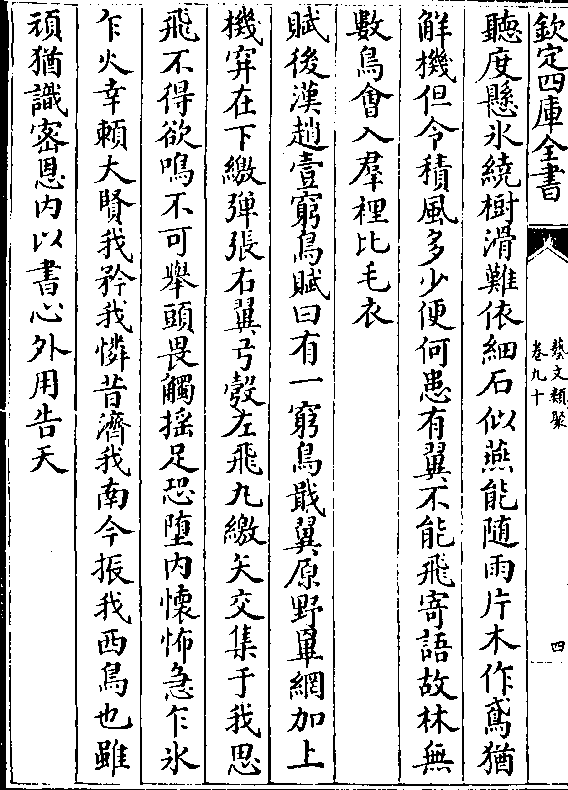 欽定四庫全書
藝文類聚
卷九十
四
聽度懸氷繞樹滑難依細石似燕能随雨片木作鳶猶
解機但令積風多少便何患有翼不能飛寄語故林無
數鳥會入羣裡比毛衣
賦後漢趙壹窮鳥賦曰有一窮鳥戢翼原野罼網加上
機穽在下繳彈張右翼弓彀左飛九繳矢交集于我思
飛不得欲鳴不可舉頭畏觸揺足恐墮内懷怖急乍氷
乍火幸頼大賢我矜我憐昔濟我南今振我西鳥也雖
頑猶識宻恩内以書心外用告天